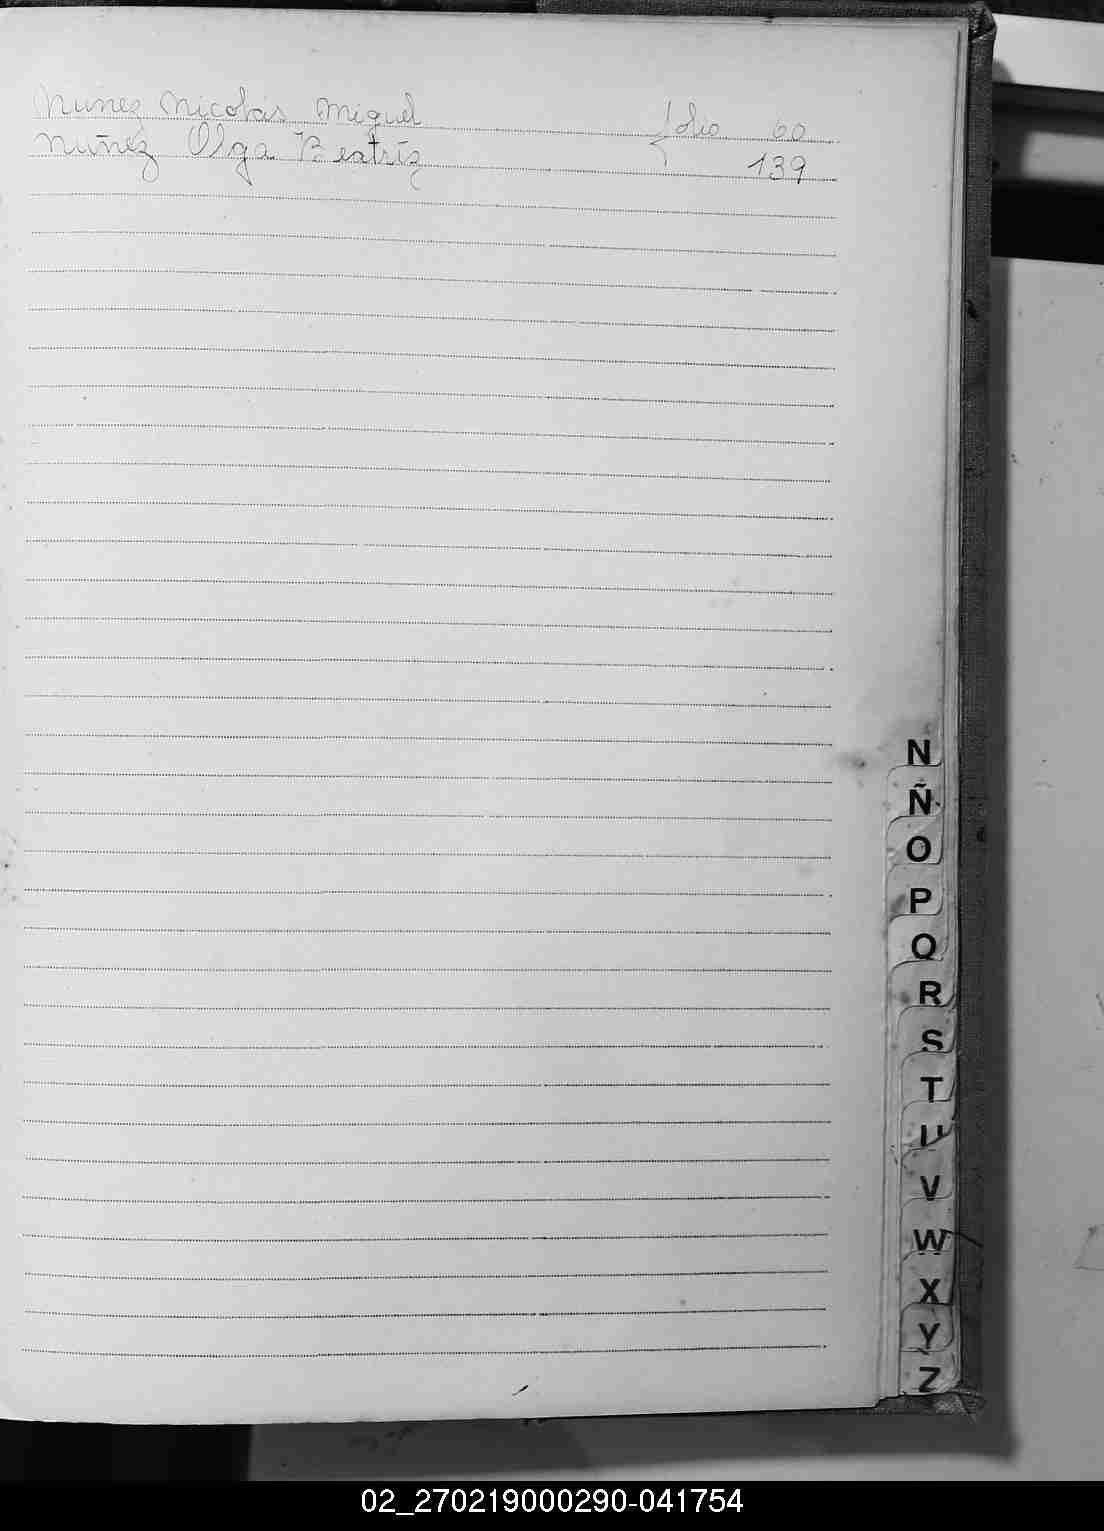 Nuñez Nicolás Miguel folio 60
Nuñez Olga Beatríz 139
N
Ñ
O
P
Q
R
S
T
U
V
W
X
Y
Z
02_270219000290-041754